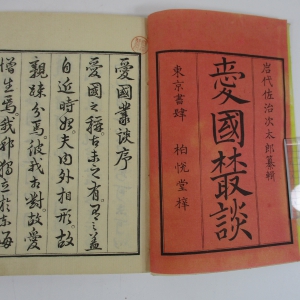 岩代佐治次太郎纂輯
愛國叢談
東京書肆 柏悦堂梓
愛國叢談序
愛國之称古未之有焉蓋
自近時如夫内外相形故
親疎分焉彼我相對故愛
憎生焉我邦獨立於東海